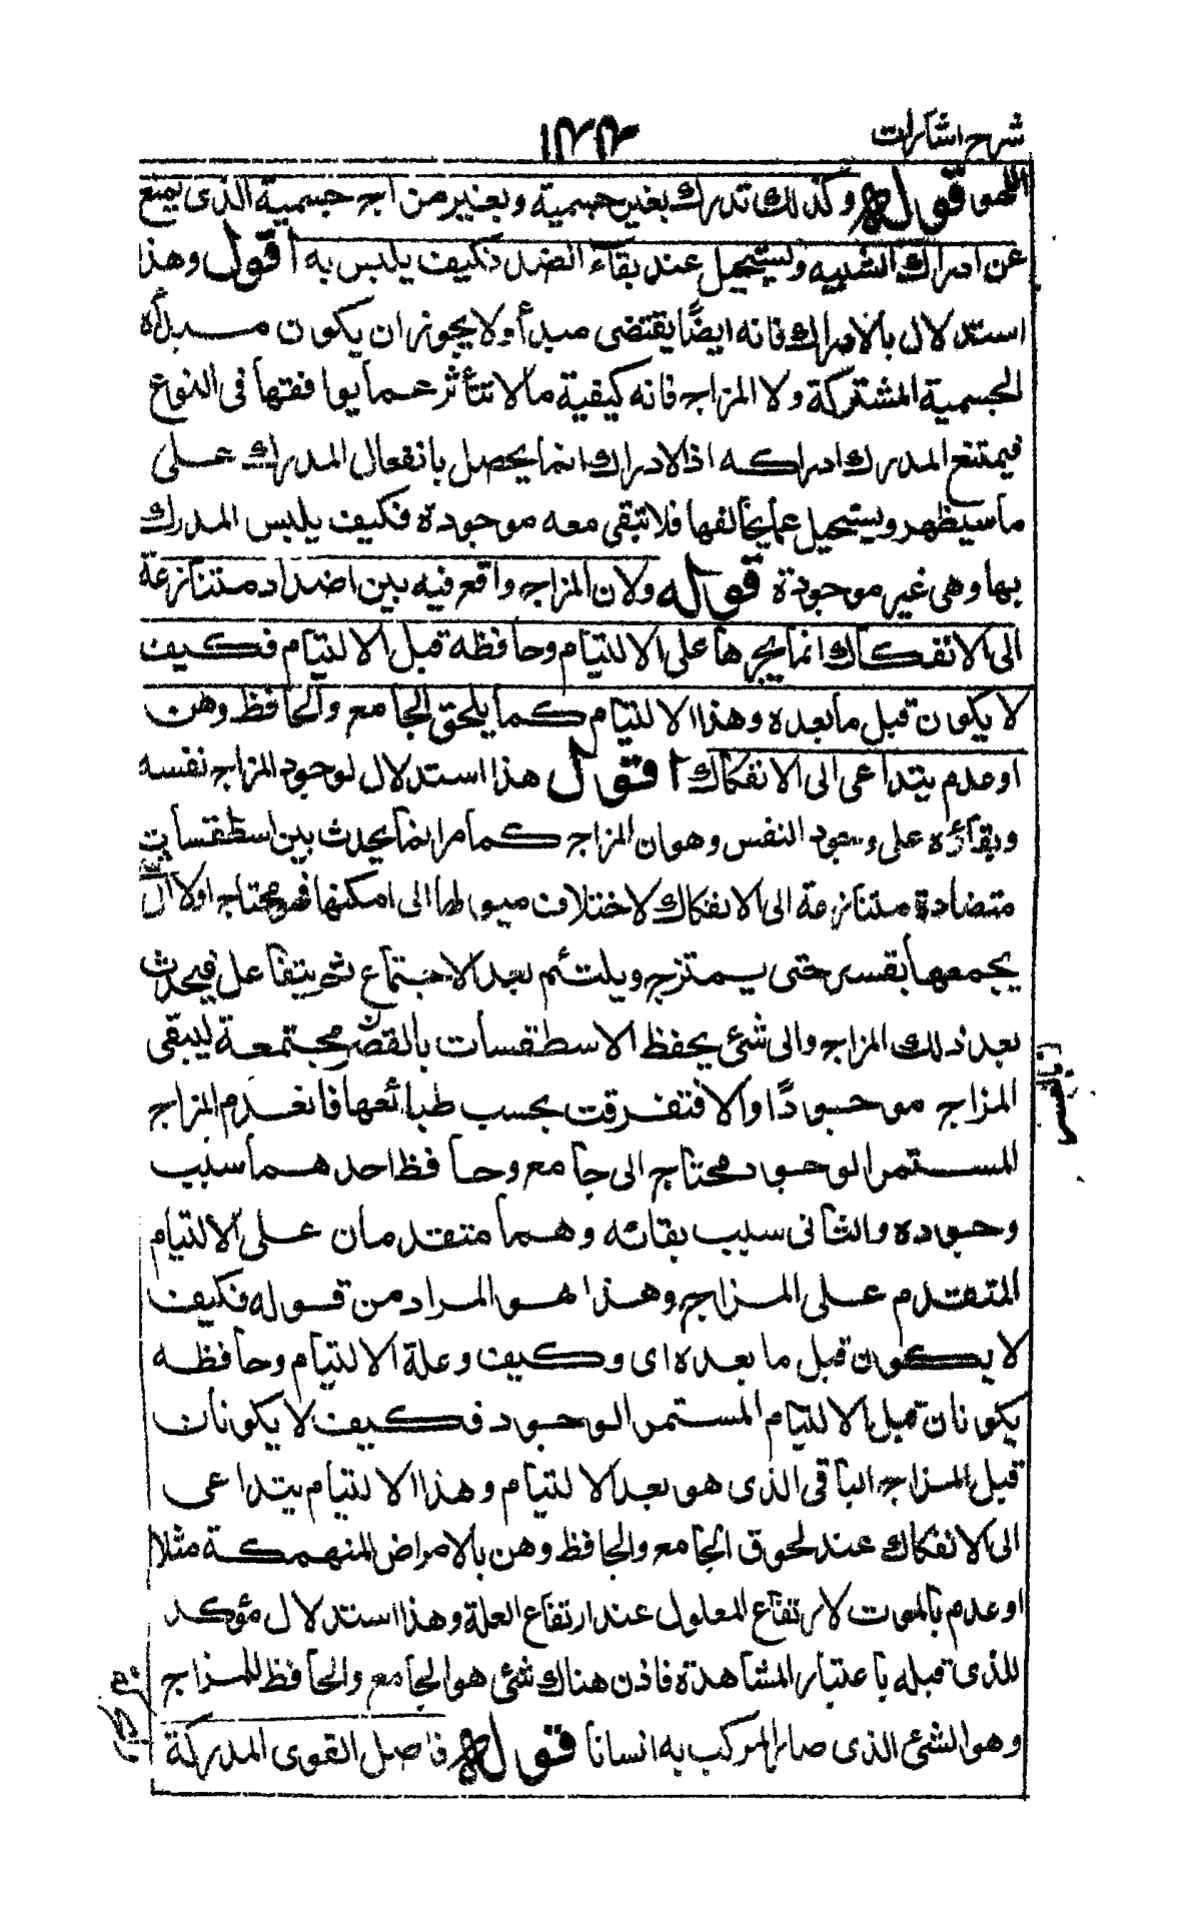 شرح اشارات
١٢٢
اللهو قوله وكذلك تدرك بغير جسمية وبغير من اج جسمية الذى يمنع
عن ادراك الشبيه ويستحيل عند بقاء الضد فكيف يلبس به اقول وهذا
استدلال بالادراك فانه ايضًا يقتضى مبدأ ولا يجوز ان يكون مبدأه
الجسمية المشتركة ولا المزاج فانه كيفية ما لا تتأثر عما يوافقها فى النوع
فيمتنع المدرك ادراكه اذ الادراك انما يحصل بانفعال المدرك على
ما سيظهر ويستحيل عما يخالفها فلا تبقى معه موجودة فكيف يلبس المدرك
بها وهى غير موجودة قوله ولان المزاج واقع فيه بين اضداد متنازعة
الى الانفكاك انما يجبرها على الالتيام وحافظه قبل الالتيام فكيف
لا يكون قبل ما بعده وهذا الالتيام كما يلحق الجامع والحافظ وهن
او عدم يتداعى الى الانفكاك اقول هذا استدلال لوجود المزاج نفسه
وبقائه على وجود النفس وهو ان المزاج كما مر انما يحدث بين اسطقسات
متضادة متنازعة الى الانفكاك لاختلاف ميولها الى امكنها فهو محتاج اولا الى
يجمعها بقسر حتى يمتزج ويلتئم بعد الاجتماع ثم يتفاعل فيحدث
بعد ذلك المزاج والى شئ يحفظ الاسطقسات بالقصر مجتمعة ليبقى
المزاج موجودًا والا فتفرقت بحسب طبائعها فانعدم المزاج
المستمر الوجود محتاج الى جامع وحافظ احدهما سبب
وجوده والثانى سبب بقائه وهما متقدمان على الالتيام
المتقدم على المزاج وهذا هو المراد من قوله فكيف
لا يكون قبل ما بعده اى وكيف وعلة الالتيام وحافظه
يكونان قبل الالتيام المستمر الوجود فكيف لا يكونان
قبل المزاج الباقى الذى هو بعد الالتيام وهذا الالتيام يتداعى
الى الانفكاك عند لحوق الجامع والحافظ وهن بالامراض المنهمكة مثلا
او عدم بالموت لارتفاع المعلول عند ارتفاع العلة وهذا استدلال مؤكد
للذى قبله باعتبار المشاهدة فاذن هناك شئ هو الجامع والحافظ للمزاج
وهو الشئ الذى صار المركب به انسانا قوله فاصل القوى المدركة